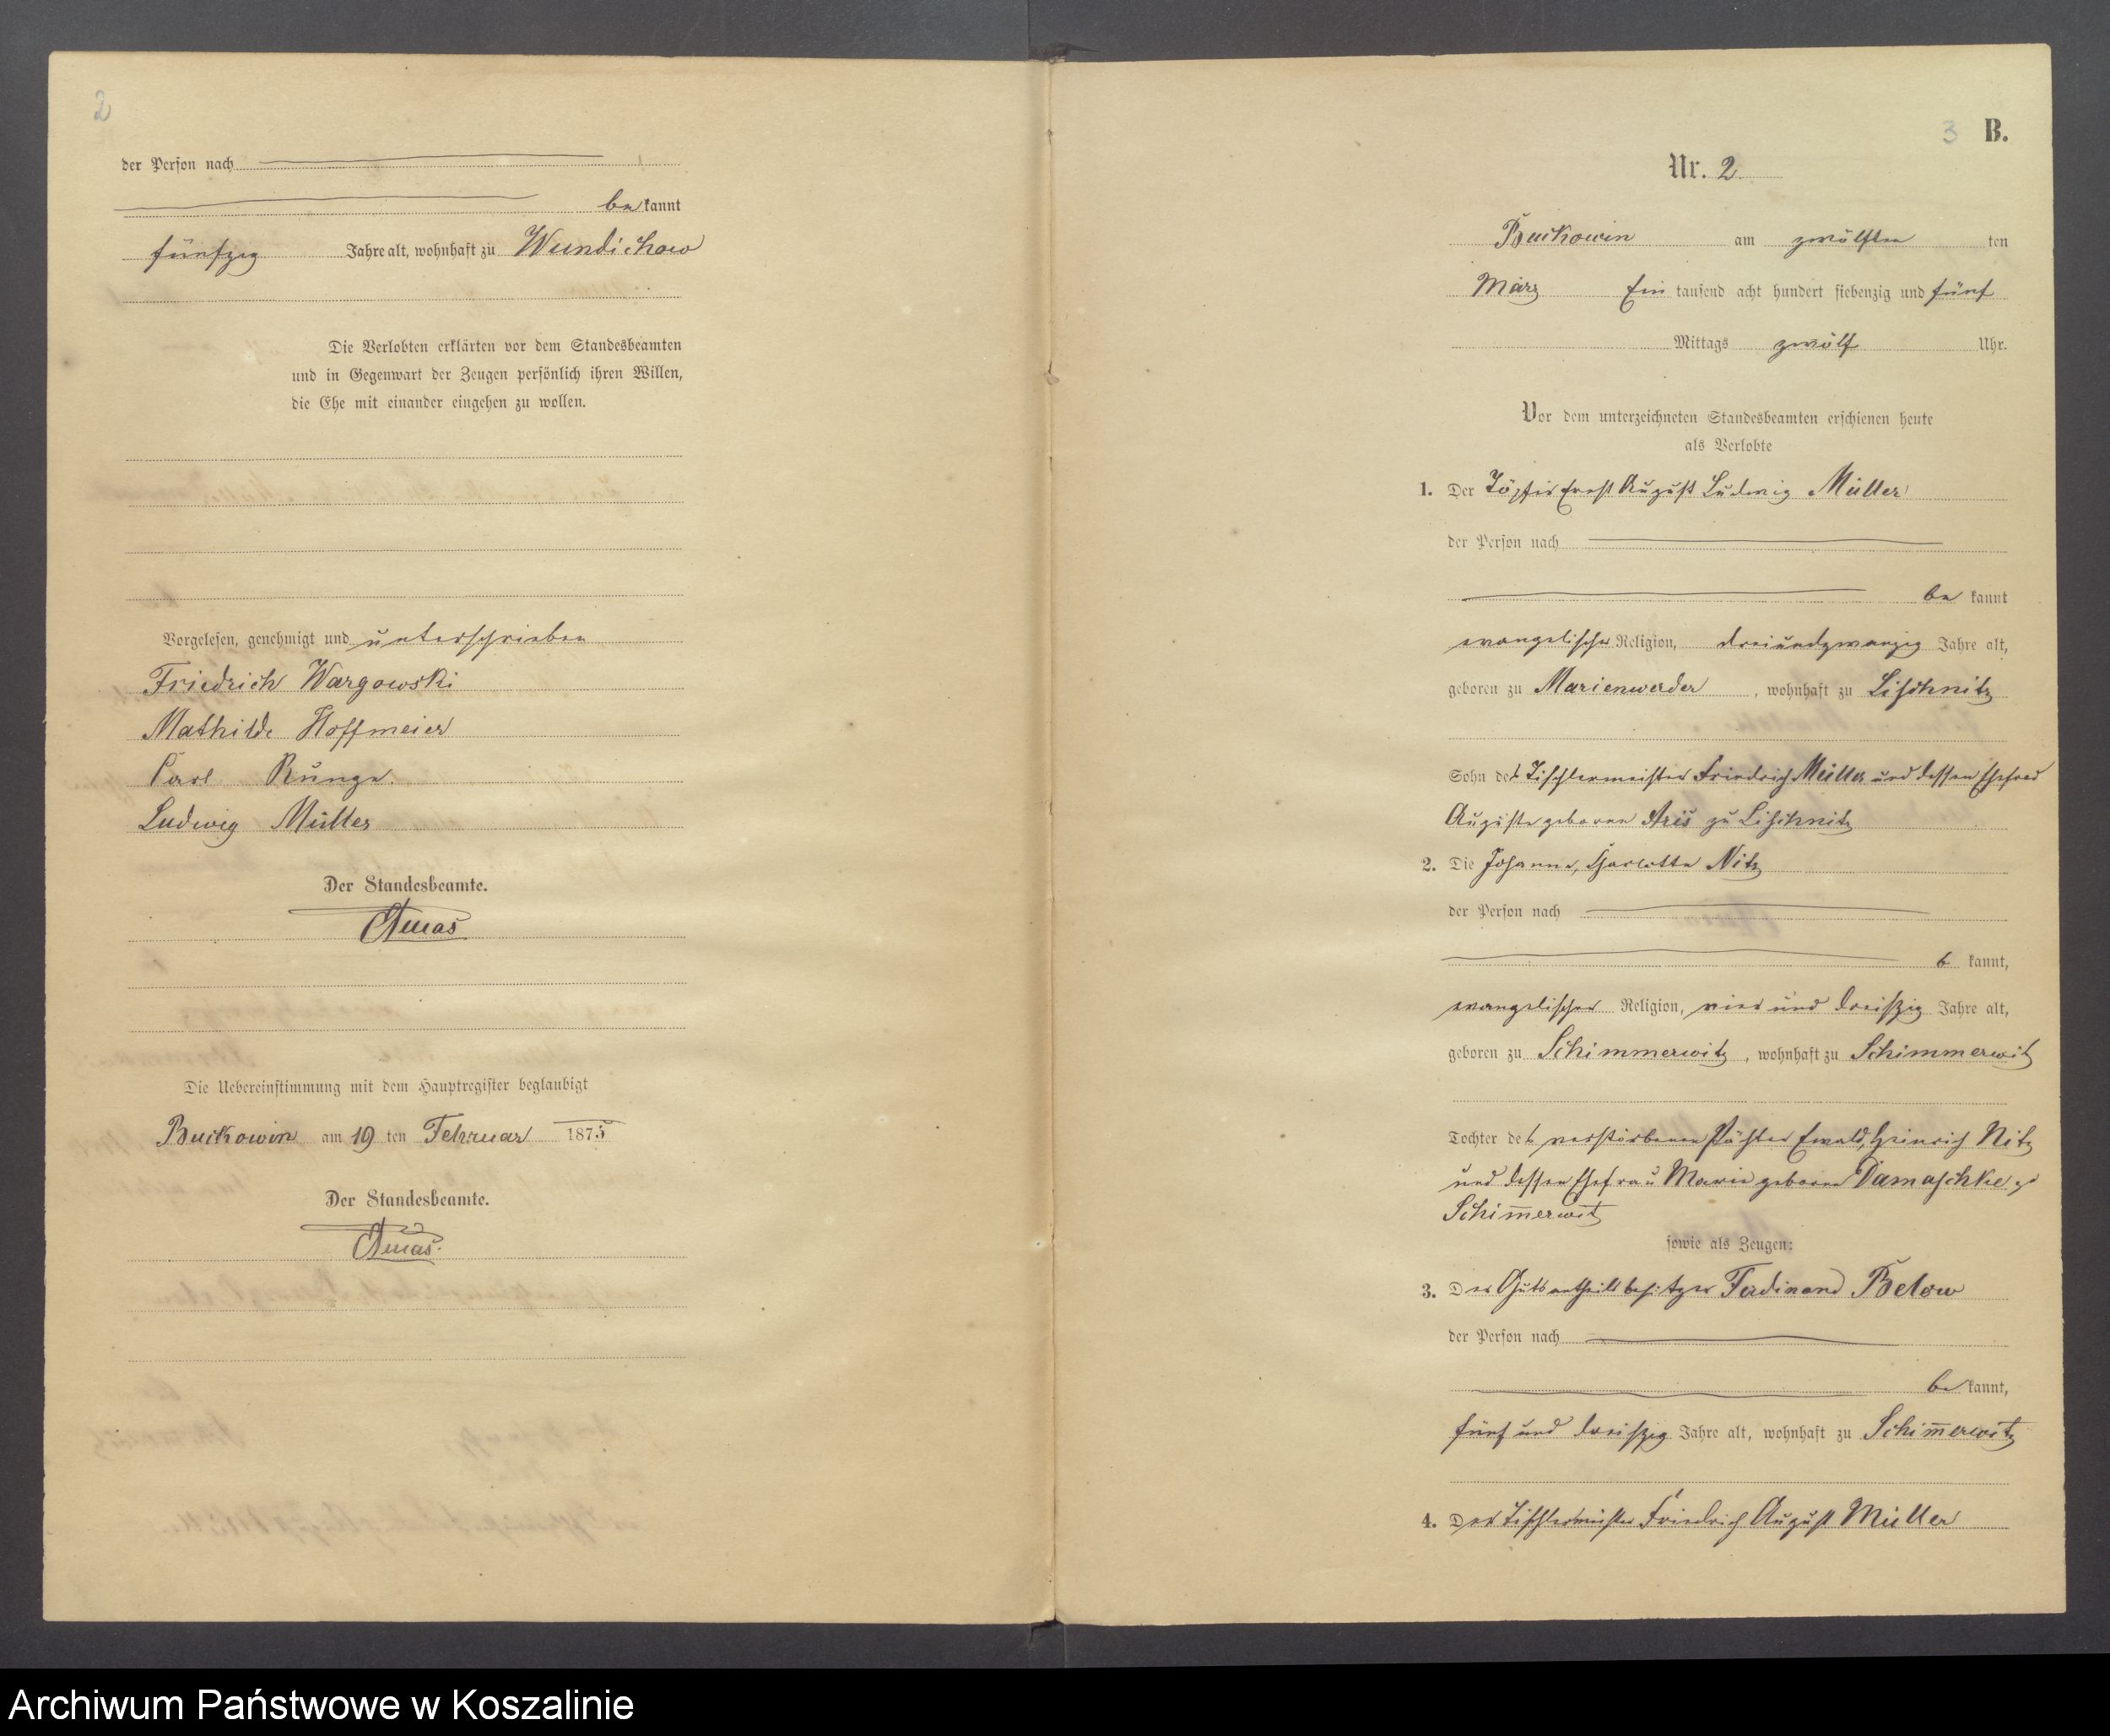 2
der Person nach
be kannt
fünfzig Jahre alt, wohnhaft zu Wundichow
Die Verlobten erklärten vor dem Standesbeamten
und in Gegenwart der Zeugen persönlich ihren Willen,
die Ehe mit einander eingehen zu wollen.
Vorgelesen, genehmigt und unterschrieben
Friedrich Wargowski
Mathilde Hoffmeier
Carl Runge.
Ludwig Müller
Der Standesbeamte.
Die Uebereinstimmung mit dem Hauptregister beglaubigt
Buckowin am 19 ten Februar 1875
Der Standesbeamte.
3 B.
Nr. 2
Buckowin am zwölften ten
März Ein tausend acht hundert siebenzig und fünf
Mittags zwölf Uhr.
Vor dem unterzeichneten Standesbeamten erschienen heute
als Verlobte
1. Der Töpfer Ernst August Ludwig Müller
der Person nach
be kannt
evangelischer Religion, dreiundzwanzig Jahre alt,
geboren zu Marienwerder, wohnhaft zu Lischnitz
Sohn des Tischlermeister Friedrich Müller und dessen Ehefrau
Auguste geborne zu Lischnitz
2. Die Johanne, Charlotte Nitz
der Person nach
b kannt,
evangelischer Religion, vier und dreißig Jahre alt,
geboren zu Schimmerwitz, wohnhaft zu Schimmerwitz
Tochter des verstorbenen Pächter Ewald, Heinrich Nitz
und dessen Ehefrau Marie geborne Damaschke zu
Schim̅erwitz
sowie als Zeugen:
3. Der Gutsantheilsbesitzer Ferdinand Below
der Person nach
be kannt,
fünf und dreißig Jahre alt, wohnhaft zu Schim̅erwitz
4. Der Tischlermeister Friedrich August Müller
Archiwum Państwowe w Koszalinie